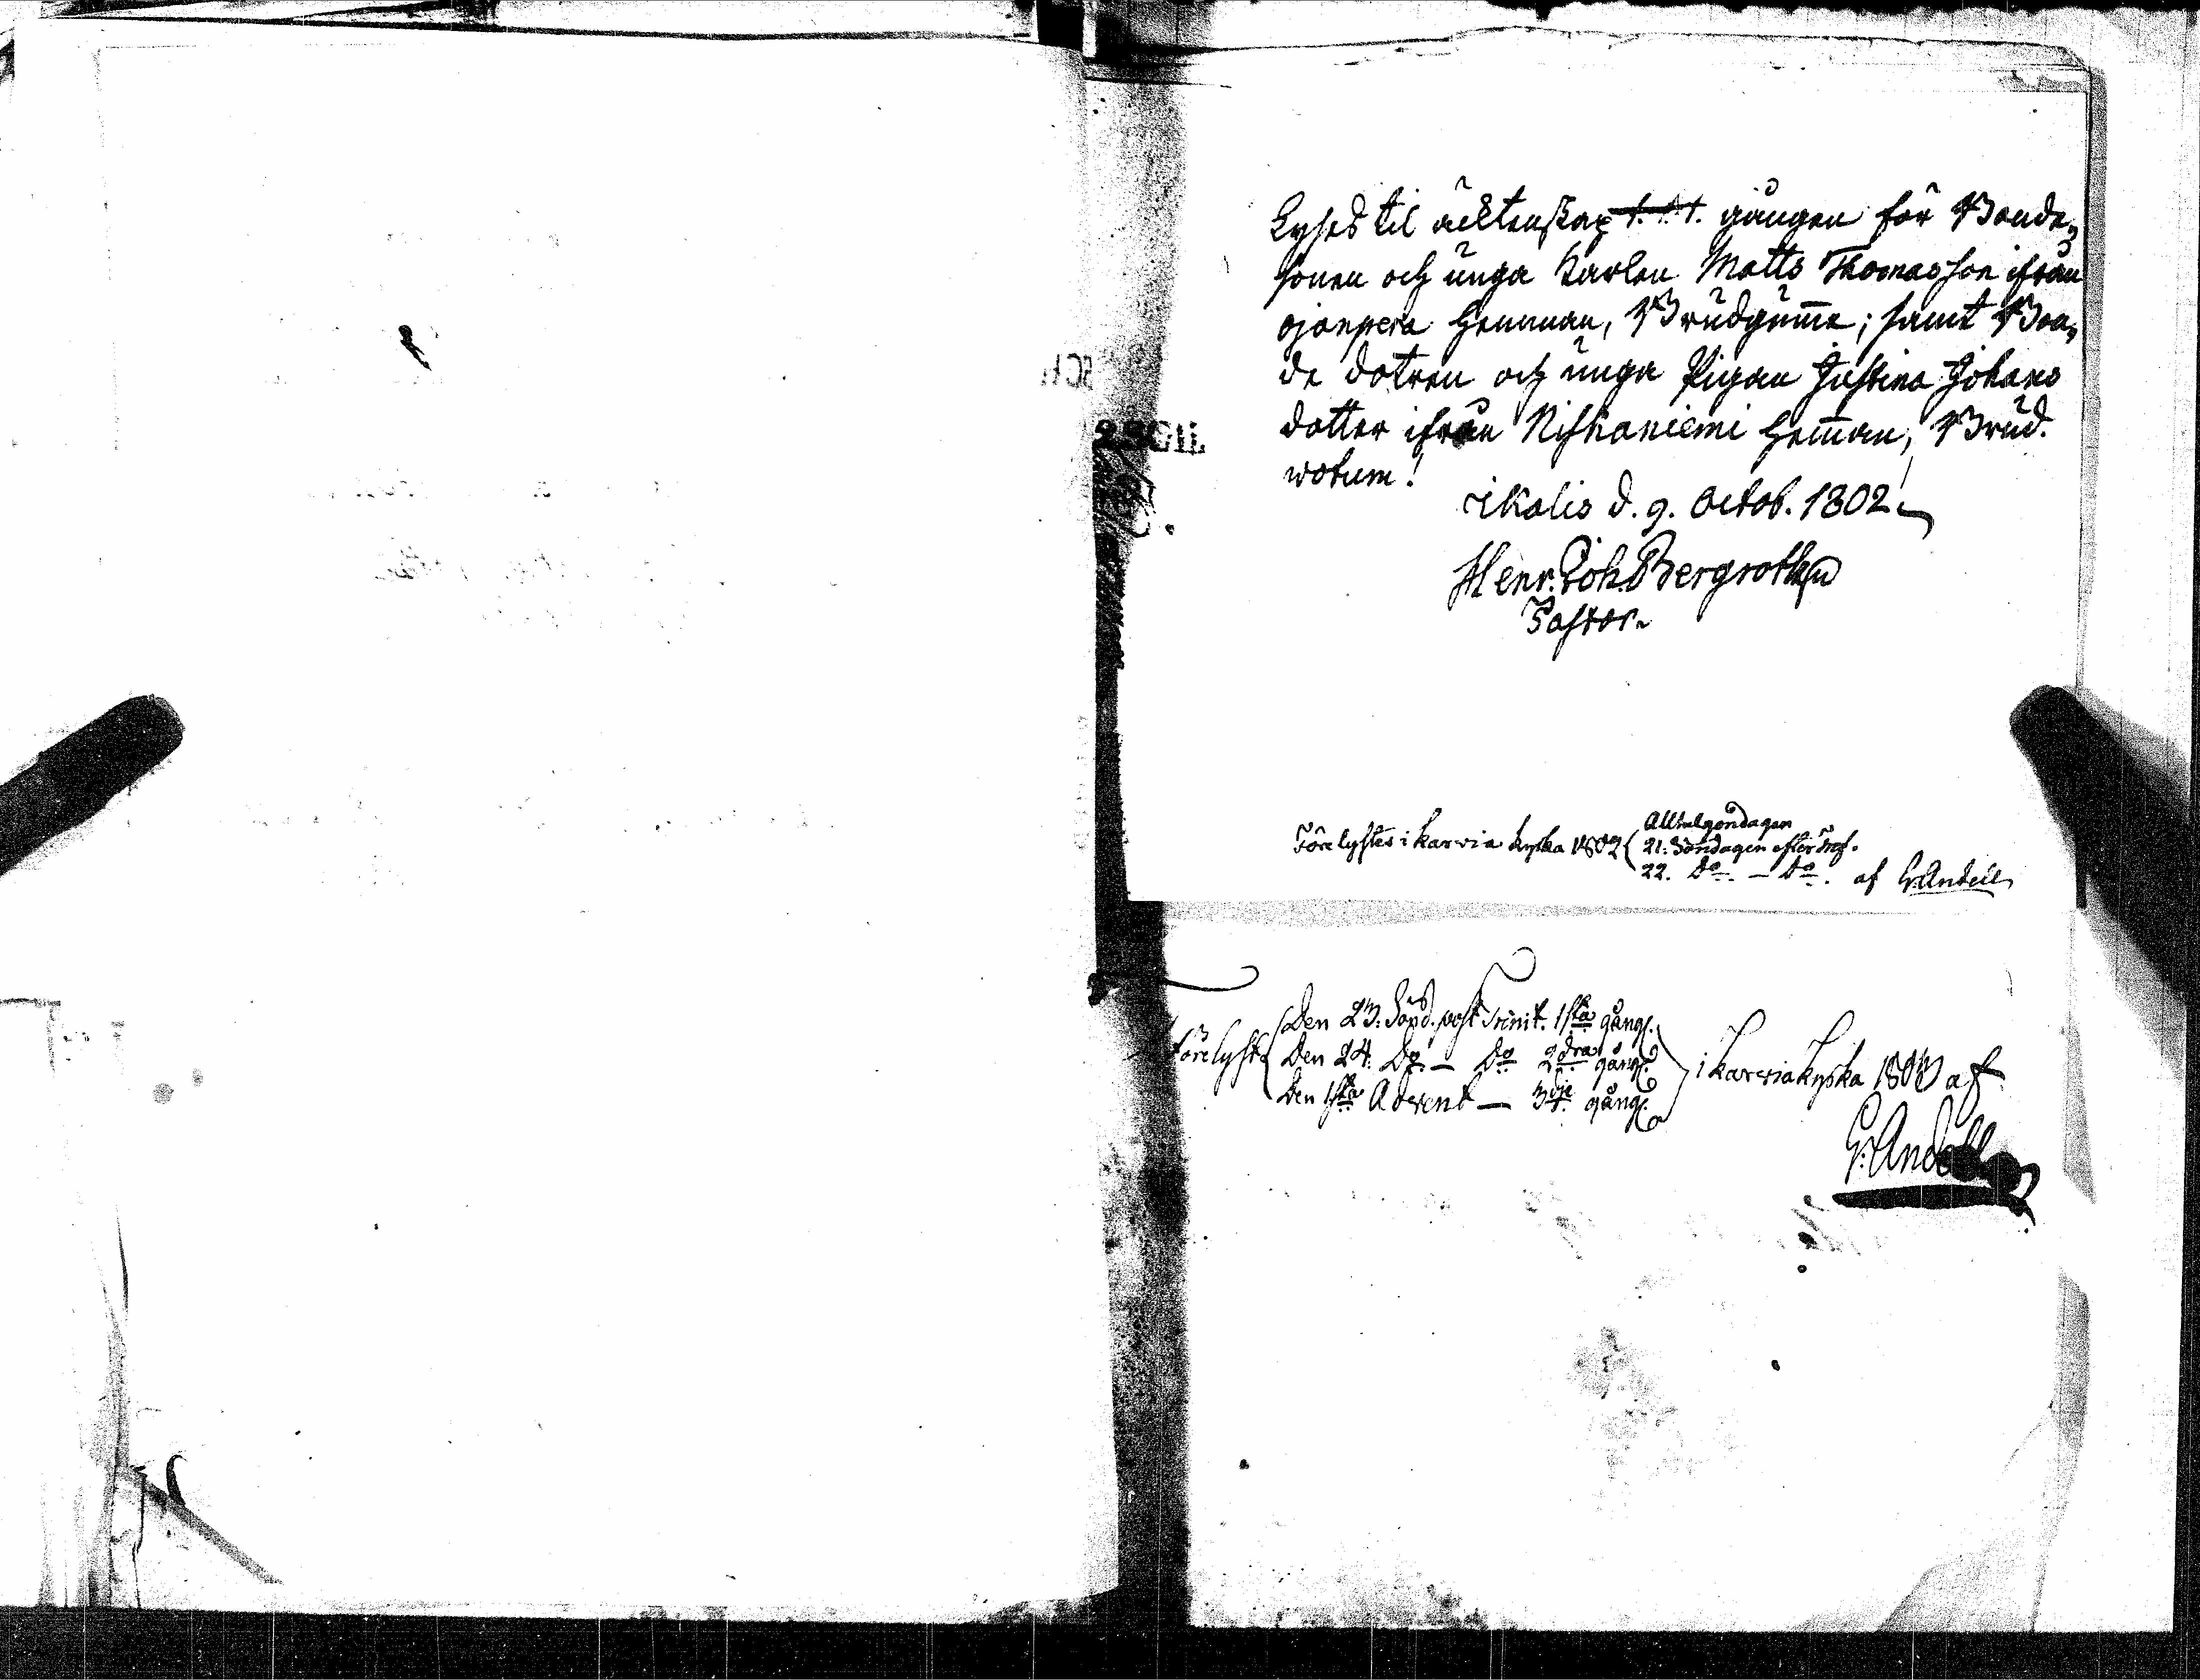 Lyses til äcktenskap 1. gången för Bonde,
sonen och unga Karlen Matts Thomasson ifrån
ojanpera Hemman, Brudgumme; samt Bon,
de dotren och unga Pigan Justina Johans
dotter ifrån Niskaniemi Hemman, Brud.
wotum!
ikalis d. 9. Octob. 1802.
Henr. Joh. Bergroth
Pastor.
Förelystes i karvia kyrka 1802 { Allhelgondagen
21. Söndagen efter Tref.
22. Do — Do. af G. Andell
Förelyst { Den 23. Sönd. post Trinit. 1sta gång.
Den 24. Do — Do 2dra gång.
Den 1sta Advent — 3dje gång.
i karvia kyrka af
G. Andell